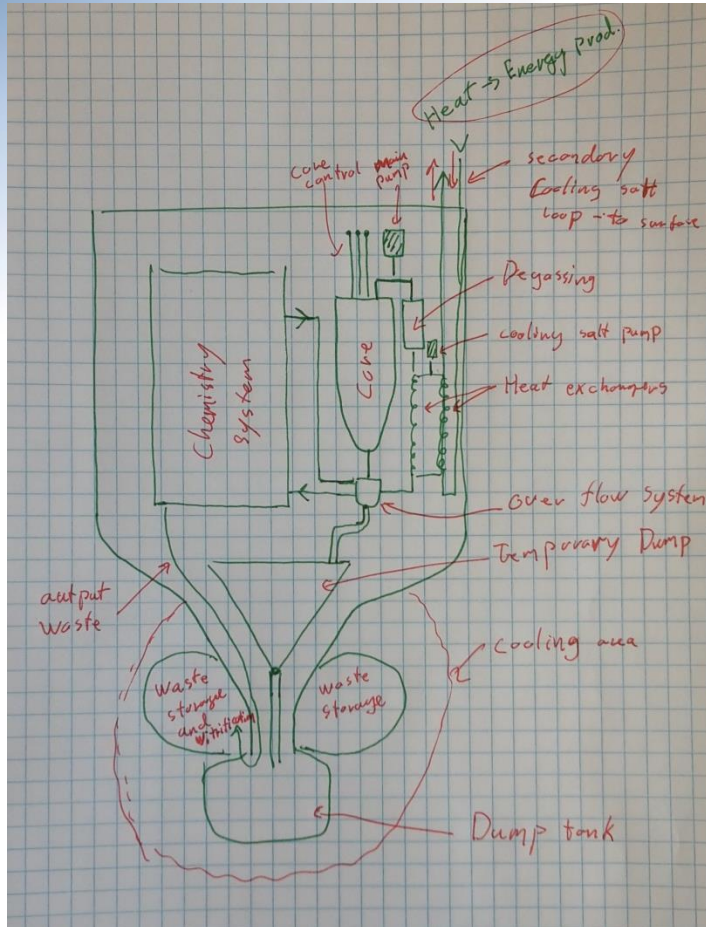 Heat → Energy Prod.
core
control
main
pump
secondory
Cooling salt
loop - to surface
Degassing
cooling salt pump
Heat exchangers
Chemistry
System
Core
over flow system
Temporary Dump
output
waste
cooling area
waste
storage
and
waste
storage
Dump tank